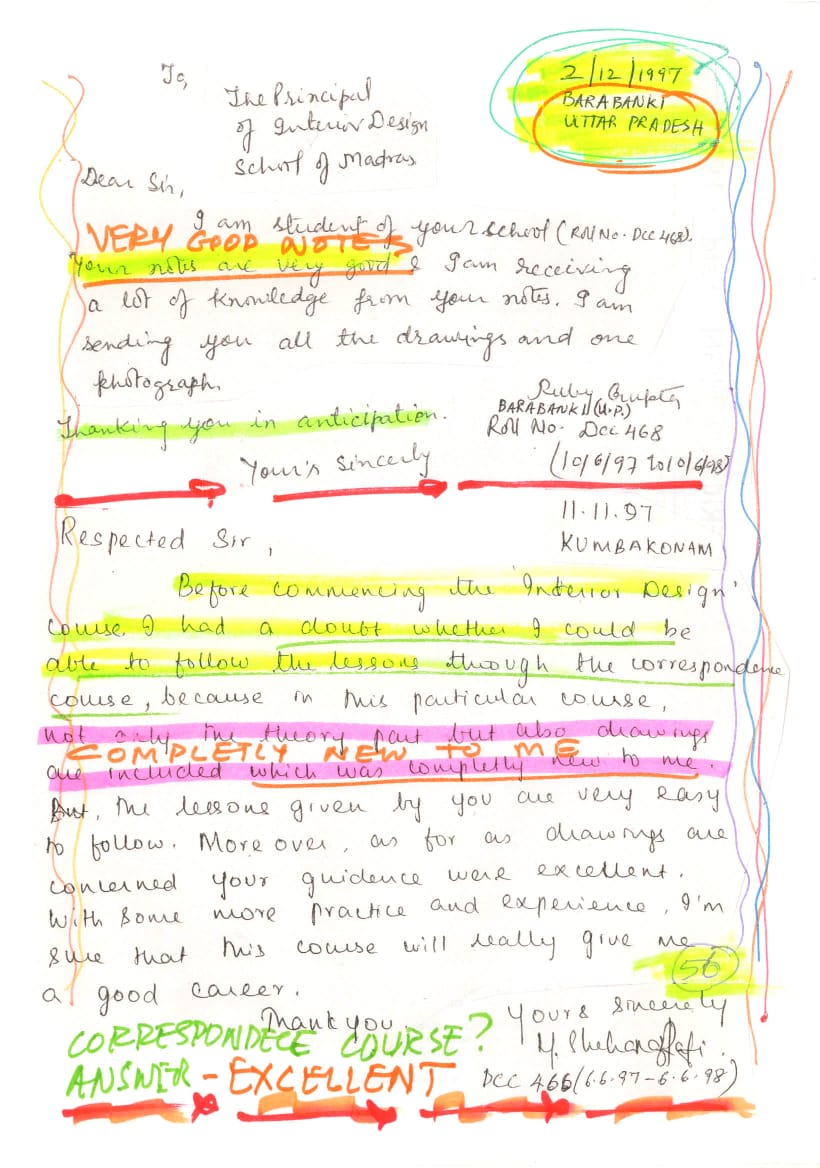 To,
2/12/1997
The Principal
BARABANKI
of Interior Design
UTTAR PRADESH
School of Madras
Dear Sir,
I am student of your school (Roll No. DCC 468).
VERY GOOD NOTES
Your notes are very good & I am receiving
a lot of knowledge from your notes. I am
sending you all the drawings and one
photograph.
Ruby Gupta
BARABANKI (U.P.)
Thanking you in anticipation.
Roll No. Dcc 468
Your's Sincerly
(10/6/97 to 10/6/98)
11.11.97
Respected Sir,
KUMBAKONAM
Before commencing the 'Interior Design'
course, I had a doubt whether I could be
able to follow the lessons through the correspondence
course, because in this particular course,
not only the theory part but also drawings
COMPLETLY NEW TO ME
are included which was completly new to me.
But, the lessons given by you are very easy
to follow. More over, as for as drawings are
concerned your guidence were excellent.
With some more practice and experience, I'm
sure that this course will really give me
56
a good career.
Thank you
Yours sincerely
CORRESPONDECE COURSE?
ANSWER - EXCELLENT
DCC 466 (6.6.97-6.6.98)